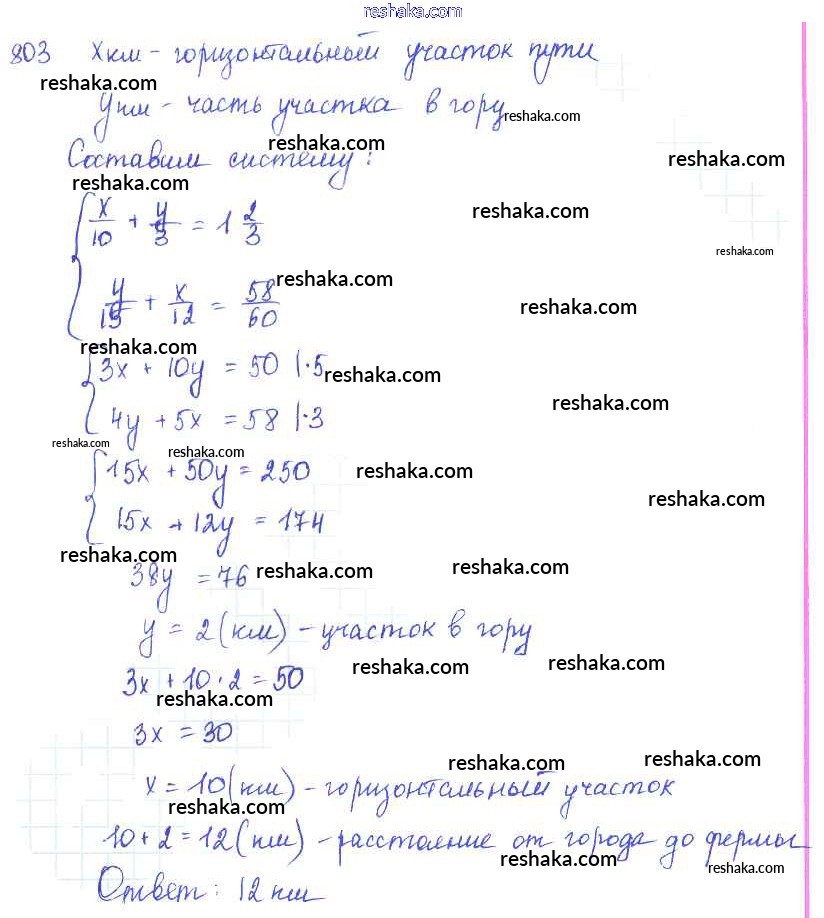 reshaka.com
803 Xкм - горизонтальный участок пути
reshaka.com
Yкм - часть участка в гору
reshaka.com
reshaka.com
Составим систему:
reshaka.com
reshaka.com
reshaka.com
x/10 + y/3 = 1 2/3
reshaka.com
reshaka.com
y/15 + x/12 = 58/60
reshaka.com
reshaka.com
3x + 10y = 50 |·5
reshaka.com
4y + 5x = 58 |·3
reshaka.com
reshaka.com
reshaka.com
15x + 50y = 250
reshaka.com
reshaka.com
15x + 12y = 174
reshaka.com
38y = 76
reshaka.com
reshaka.com
y = 2 (км) - участок в гору
reshaka.com
reshaka.com
3x + 10 · 2 = 50
reshaka.com
3x = 30
reshaka.com
reshaka.com
x = 10 (км) - горизонтальный участок
reshaka.com
10 + 2 = 12 (км) - расстояние от города до фермы
reshaka.com
reshaka.com
Ответ: 12 км